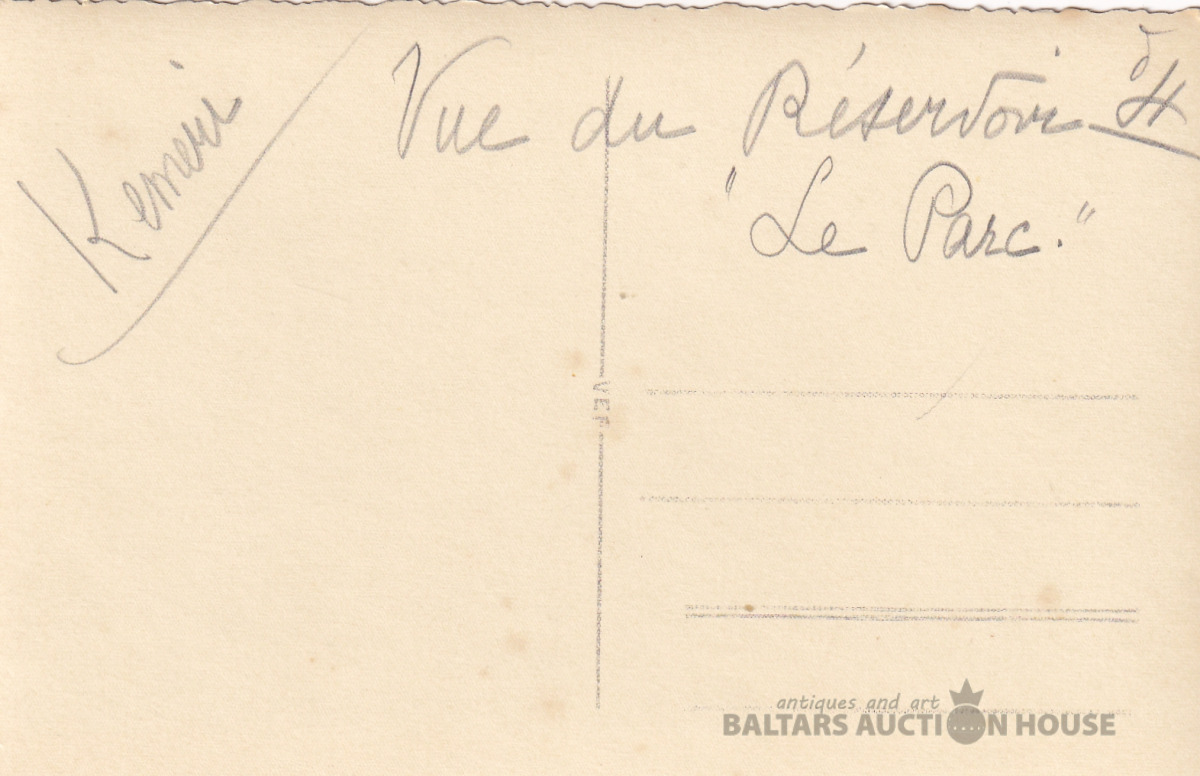 Kemeri
Vue du Réservoir
"Le Parc."
VEF
antiques and art
BALTARS AUCTION HOUSE